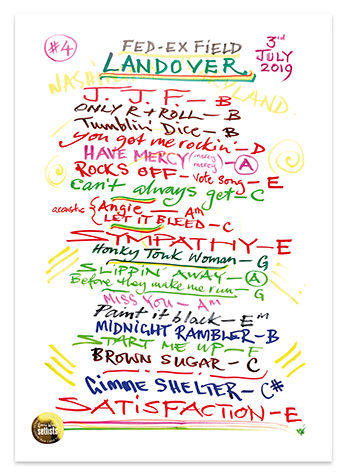 #4
FED-EX FIELD
LANDOVER
3rd
JULY
2019
WASHINGTON MARYLAND
J. J. F. — B
ONLY R + ROLL — B
Tumblin' Dice — B
You got me rockin' — D
HAVE MERCY (mercy mercy) — A
ROCKS OFF — vote song — E
Can't always get — C
acoustic { Angie — Am
LET IT BLEED — C
SYMPATHY — E
Honky Tonk Woman — G
SLIPPIN' AWAY — A
Before they make me run — G
MISS YOU — Am
Paint it black — Em
MIDNIGHT RAMBLER — B
START ME UP — F
BROWN SUGAR — C
Gimme SHELTER — C#
SATISFACTION — E
setlists